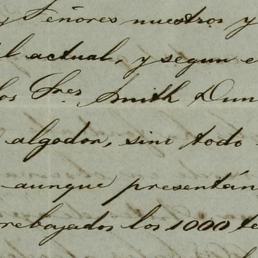 y Señores nuestros y
il actual, y segun e
los Sres Smith Dun
algodon, sino todo
aunque presentán
rebajados los 1000 te